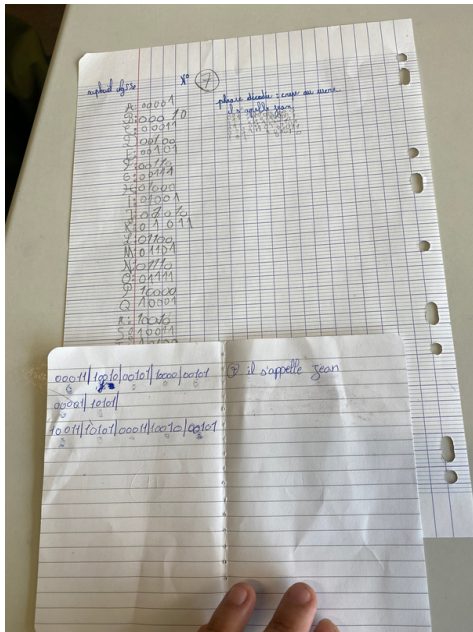 N° 7
phrase décodée : crepe au sucre
il s'appelle jean
A: 00001
B: 00010
C: 00011
D: 00100
E: 00101
F: 00110
G: 00111
H: 01000
I: 01001
K: 01011
L: 01100
M: 01101
N: 01110
O: 01111
P: 10000
Q: 10001
R: 10010
S: 10011
00011|10010|00101|10000|00101
00001|10101|
10011|10101|00011|10010|00101
7 il s'appelle jean